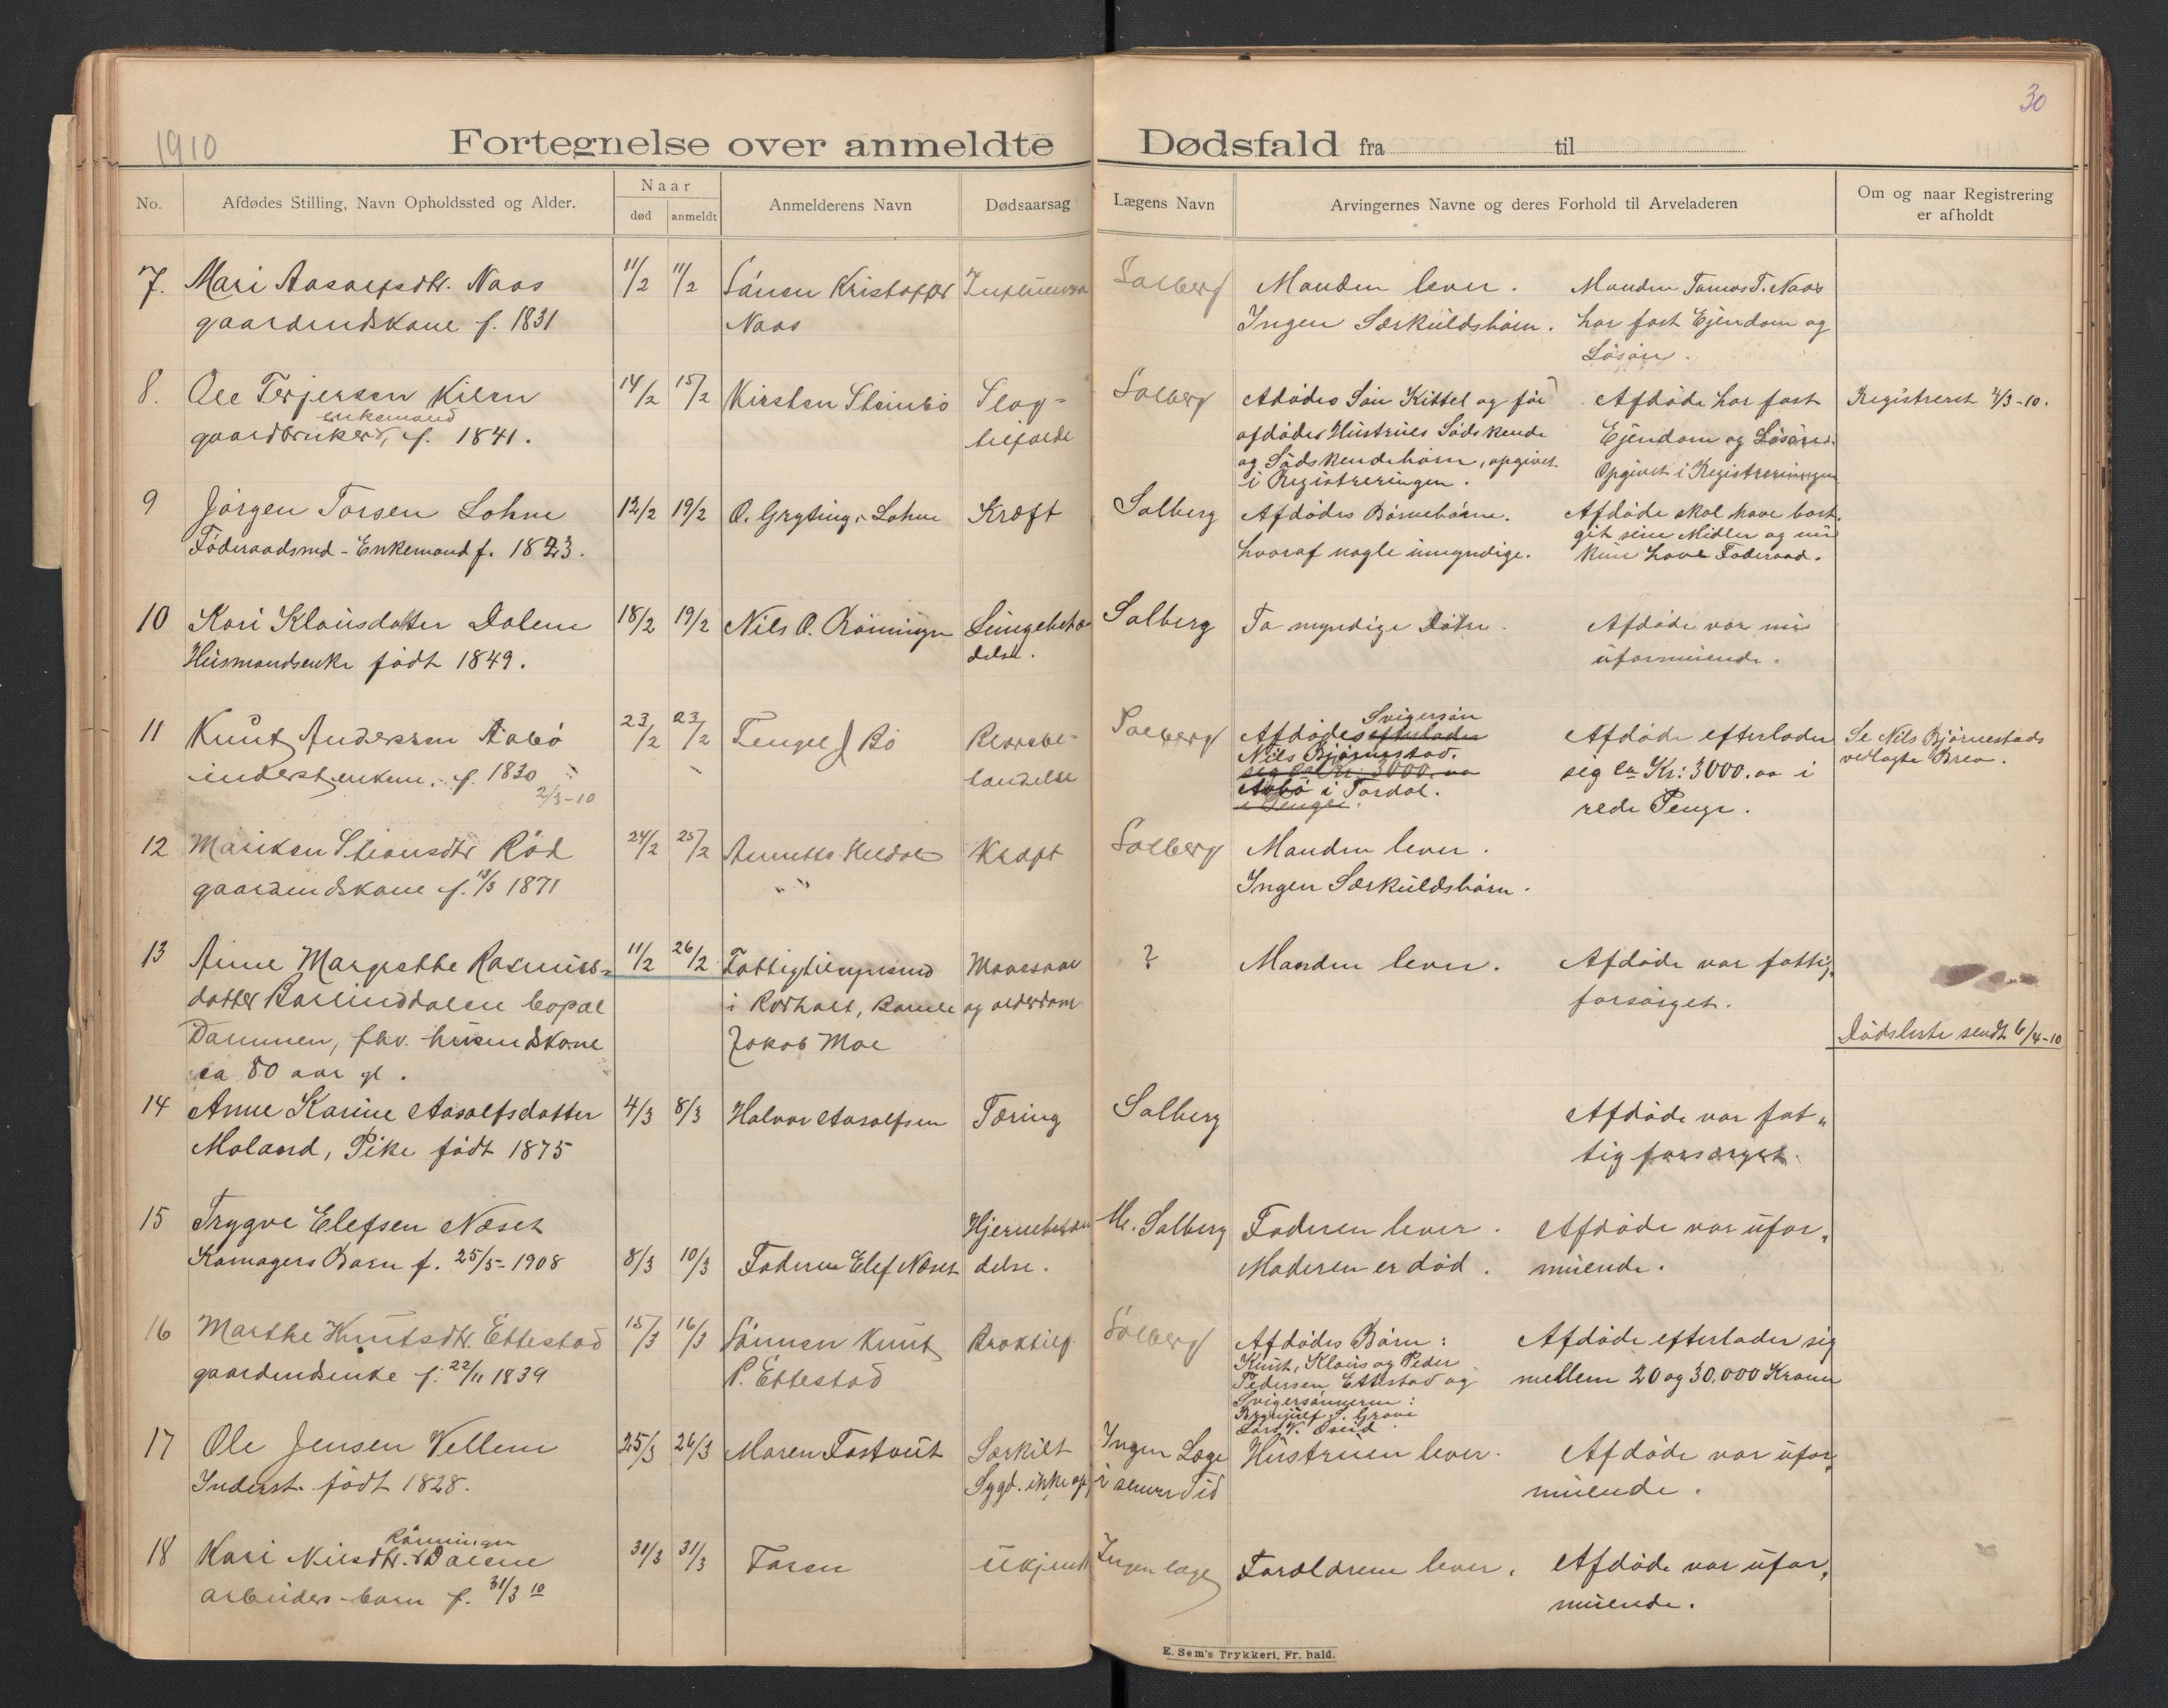 30
1910
Fortegnelse over anmeldte Dødsfald fra til
No.
Afdødes Stilling, Navn Opholdssted og Alder.
Naar
død
anmeldt
Anmelderens Navn
Dødsaarsag
Lægens Navn
Arvingernes Navne og deres Forhold til Arveladeren
Om og naar Registrering
er afholdt
7. Mari Aasolfsdtr. Naas
gaardmdskone f. 1831
11/2 11/2
Sönen Kristoffer
Naas
Influensa
Solberg
Manden lever.
Ingen Særkuldsbörn.
Manden Tomas T. Naas
har fast Ejendom og
Lösöre.
8. Ole Terjersen Kilen
enkemand
gaardbruker, f. 1841.
14/2 15/2
Kirsten Steinbö
Slag-
tilfælde
Solberg
Afdödes Sön Kittel og för
afdödes Hustrues Södskende
og Södskendebörn, opgivet
i Registreringen.
Afdöde har fast
Ejendom og Lösöre.
Opgivet i Registreringen
Registreret 4/3-10.
9 Jörgen Torsen Lohne
Föderaadsmd - Enkemand f. 1823.
12/2 19/2
O. Gryting, Lohne
Kræft
Solberg
Afdödes Börnebörn.
hvoraf nogle umyndige.
Afdöde skal have bort-
git sine Midler og nu
kun have Föderaad.
10 Kari Klausdatter Dalene
Husmandsenke födt 1849.
18/2 19/2
Nils O. Rönningen
Lungebetæn
delse.
Solberg
To myndige Dötre.
Afdöde var nu
uformuende.
11 Knut Andersen Aabö
inderst, enkem. f. 1830
2/3-10
23/2 23/2
Tengel J Bö
Blærebe-
tændelse
Solberg
Svigersön
Afdödes efterlader
Nils Bjørnestad.
sig ca Kr: 3000.00
Aabö i Tördal.
i Penge.
Afdöde efterlader
sig ca Kr: 3000.00 i
rede Penge.
Se Nils Bjørnestads
vedlagte Brev.
12 Mariken Stiansdtr Röd
gaardmdskone f. 13/3 1871
24/2 25/2
Annette Heldal
" "
Kræft
Solberg
Manden lever.
Ingen Særkuldsbörn.
13 Anne Margrethe Rasmus-
datter
Dammen, fhv. husmdskone
ca 80 aar gl.
11/2 26/2
Fattigtilsynsmd
i Rörholt, Bamle
Jakob Moe
og alderdom
?
Manden lever.
Afdöde var fattig-
forsörget.
Dödsliste sendt 6/4-10
14 Anne Karine Aasolfsdatter
Moland, Pike födt 1875
4/3 8/3
Halvor Aasolfsen
Tæring
Solberg
Afdöde var fat-
tig forsørget.
15 Trygve Elefsen Næset
Komagers Barn f. 25/5-1908
8/3 10/3
Faderen Elef Næset
Hjernebetæn
delse.
M. Solberg
Faderen lever.
Moderen er död.
Afdöde var ufor-
muende.
16 Marthe Knutsdtr. Ettestad
gaardmdsenke f. 22/11 1839
15/3 16/3
Sönnen Knut
P. Ettestad
Solberg
Afdödes Börn:
Knut, Klaus og Peder
Pedersen Ettestad og
Svigersönnerne:
Brynjulf S. Grave
Lars K. Óseid
Afdöde efterlader sig
mellem 20 og 30,000 Kroner
17 Ole Jensen Vellene
Inderst. födt 1828.
25/3 26/3
Maren Tostvet
Særkilt
Sygd. ikke op
Ingen Læge
i senere Tid
Hustruen lever.
Afdöde var ufor-
muende.
18 Rönningen
Kari Nilsdtr. Dalene
arbeiders-barn f. 31/3 10
31/3 31/3
Faren
Ukjendt
Ingen læge
Forældrene lever.
Afdöde var ufor-
muende.
E. Sem's Trykkeri, Fr. hald.